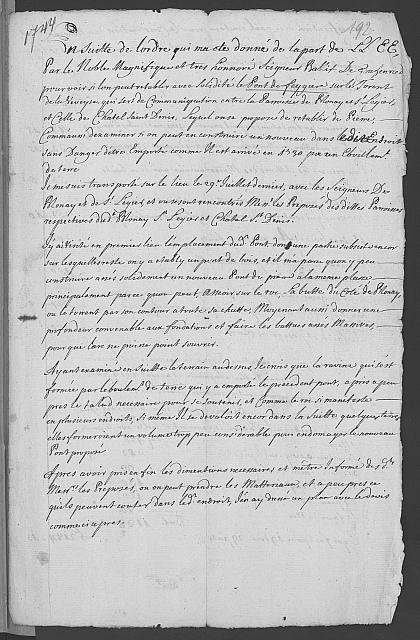 1744
192
En Suitte de lordre qui ma ete donné de la part de LL EE,
Par le Noble Magnifique et tres honnoré Seigneur Balif De
pour voir si lon peut retablir avec solidité le Pont de feygere sur le Torent
de la Veveyse qui sert de Communication entre la Parroisse de Blonay et St Legier
et Celle de Châtel Saint Denis, Lequel on se propose de retablir de Pierre
Comm'aussi examiner si on peut en construire un nouveau dans ledit Endroit
sans Danger d'être Emporté comme Il est arrivé en 1730 par un Eboulement
de terre
Je me suis transporté sur le lieu le 29e Juillet dernier, avec les Seigneurs De
Blonay et de St Legier, et ou se sont rencontrés Messrs les Preposés des dittes Parroisses
respectives dudt Blonay St Legier et Chatel St Denis.
J'ay Visité en premier lieu lemplacement dud Pont, dont une partie subsiste encor
sur lesquels restes on y a etably un pont de bois, et il m'a paru quon y peu
construire assés solidement un nouveau Pont de pierre à la meme place
principalement parce quon peut Assoir sur le roc la butte du Coté de Blonay,
ou le torrent par son contour a toute sa chutte, Moyenant aussi donner une
profondeur convenable aux fondations et faire les buttues assés Massives,
pour que l'on ne puisse souvrir.
Ayant examiné en Suitte le terrain au dessus, Je crois que la ravine qui s'est
formée par leboulemt de terre qui y a emporté le precedent pont, a pris a peu
pres le talud necessaire pour se soutenir, et Comme le roc se manifeste
en plusieurs endroits, si meme Il se devaloit encor dans la Suitte quelques terres,
elles formeroient un volume trop peu considerable pour endomager le nouveau
Pont proposé
Apres avoir pris en fin les dimentions necessaires et m'etre Informé des dts
Messrs les Preposés, ou on peut prendre les Matteriaux, et a peu pres ce
qu'ils peuvent couter dans le dt endroit, J'en ay dressé un plan avec le devis
comme ci apres.